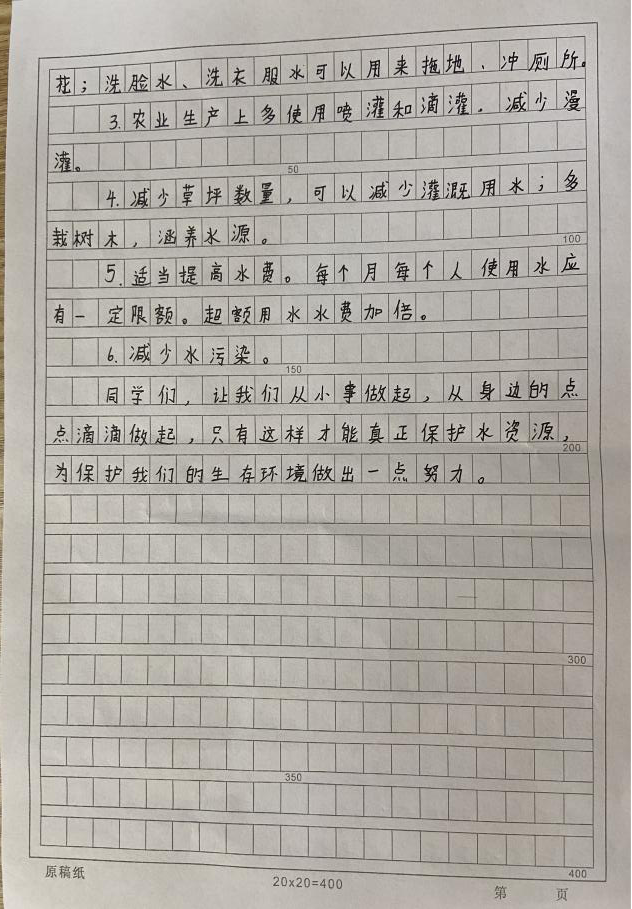 花；洗脸水、洗衣服水可以用来拖地、冲厕所。
3.农业生产上多使用喷灌和滴灌．减少漫
灌。
50
4.减少草坪数量，可以减少灌溉用水；多
栽树木，涵养水源。
100
5.适当提高水费。每个月每个人使用水应
有一定限额。超额用水水费加倍。
6.减少水污染。
150
同学们，让我们从小事做起，从身边的点
点滴滴做起，只有这样才能真正保护水资源，
200
为保护我们的生存环境做出一点努力。
300
350
400
原稿纸
20x20=400
第 页